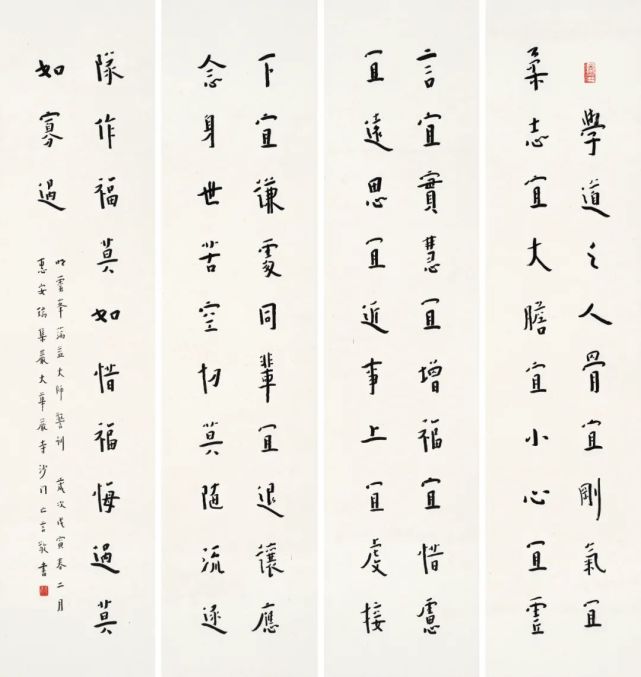 學道之人骨宜剛氣宜
柔志宜大膽宜小心宜虛
言宜實慧宜增福宜惜慮
宜遠思宜近事上宜虔接
下宜謙處同輩宜退讓應
念身世苦空切莫隨流逐
隊作福莫如惜福悔過莫
如寡過
明靈峯蕅益大師警訓 歲次戊寅春二月
惠安瑞集巖大華嚴寺沙門亡言敬書